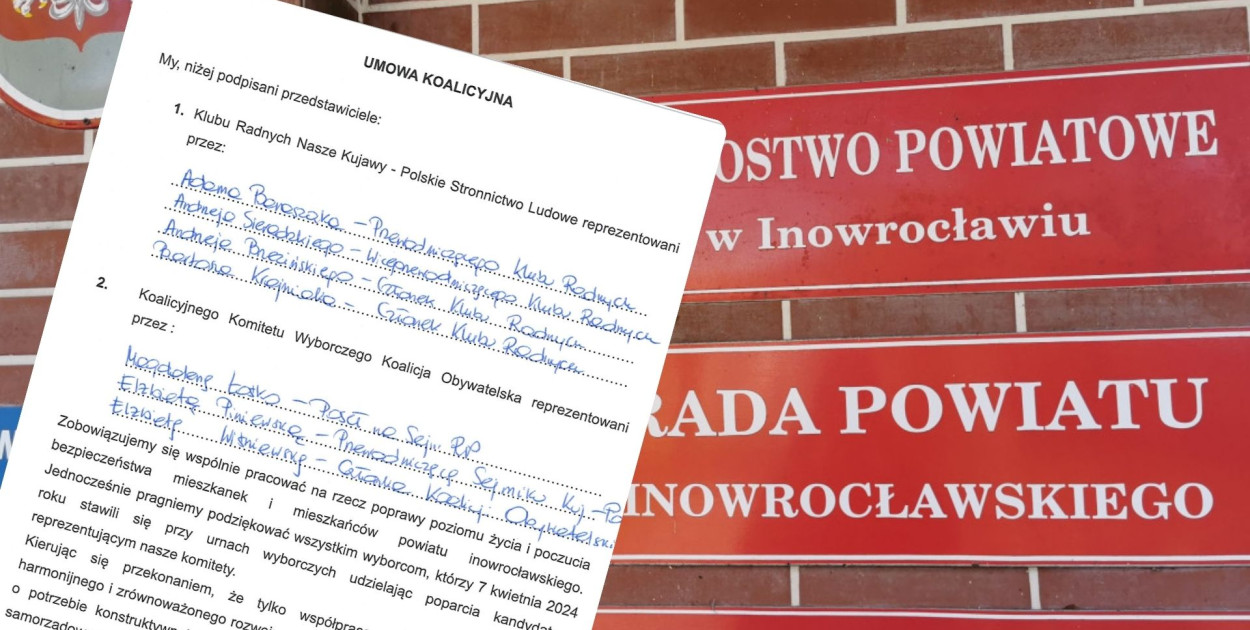 UMOWA KOALICYJNA
My, niżej podpisani przedstawiciele:
1. Klubu Radnych Nasze Kujawy - Polskie Stronnictwo Ludowe reprezentowani
przez:
Adama Baraszko – Przewodniczącego Klubu Radnych
Andrzeja Sieradzkiego – Wiceprzewodniczącego Klubu Radnych
Andrzeja Brezińskiego – Członek Klubu Radnych
Bartosza Krajniaka – Członek Klubu Radnych
2. Koalicyjnego Komitetu Wyborczego Koalicja Obywatelska reprezentowani
przez :
Magdalenę Łośko – Poseł na Sejm RP
Elżbietę Piniewską – Przewodniczącą Sejmiku Kuj-Po
Elżbietę Wiśniewską – Członka Koalicji Obywatelski
Zobowiązujemy się wspólnie pracować na rzecz poprawy poziomu życia i poczucia
bezpieczeństwa mieszkanek i mieszkańców powiatu inowrocławskiego.
Jednocześnie pragniemy podziękować wszystkim wyborcom, którzy 7 kwietnia 2024
roku stawili się przy urnach wyborczych udzielając poparcia kandydat
reprezentującym nasze komitety.
Kierując się przekonaniem, że tylko współprac
harmonijnego i zrównoważonego rozwoj
o potrzebie konstruktywn
samorządow
OSTWO POWIATOWE
w Inowrocławiu
RADA POWIATU
INOWROCŁAWSKIEGO